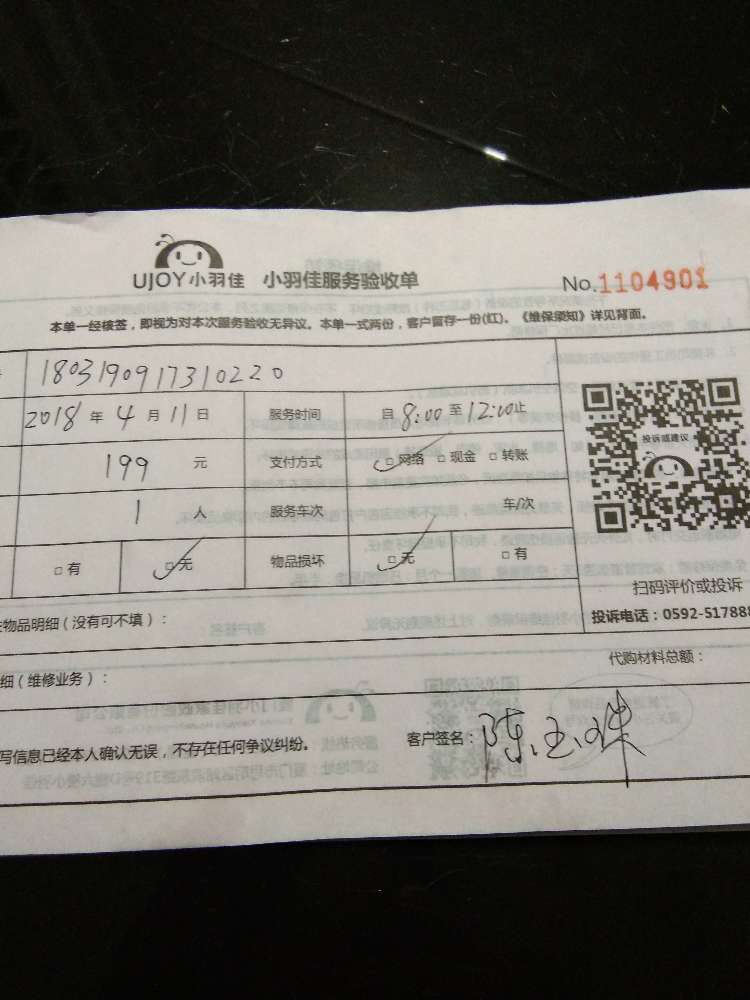 UJOY小羽佳 小羽佳服务验收单 No.1104901
本单一经核签，即视为对本次服务验收无异议。本单一式两份，客户留存一份(红)。《维保须知》详见背面。
180319091731022０
2018 年 4 月 11 日 服务时间 自 8:00 至 12:00 止
199 元 支付方式 □ 网络 □ 现金 □ 转账
投诉或建议
1 人 服务车次 车/次
□ 有 □ 无 物品损坏 □ 无 □ 有
扫码评价或投诉
物品明细（没有可不填）： 投诉电话：0592-517888
细（维修业务）： 代购材料总额：
写信息已经本人确认无误，不存在任何争议纠纷。 客户签名：陈玉